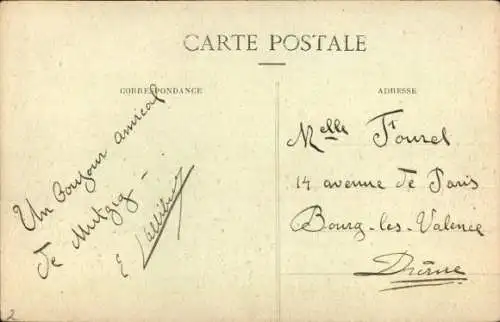 CARTE POSTALE
CORRESPONDANCE
Un bonjour amical
de Mutzig -
E
ADRESSE
Melle Fourel
14 avenue de Paris
Bourg-les-Valence
Drôme
2